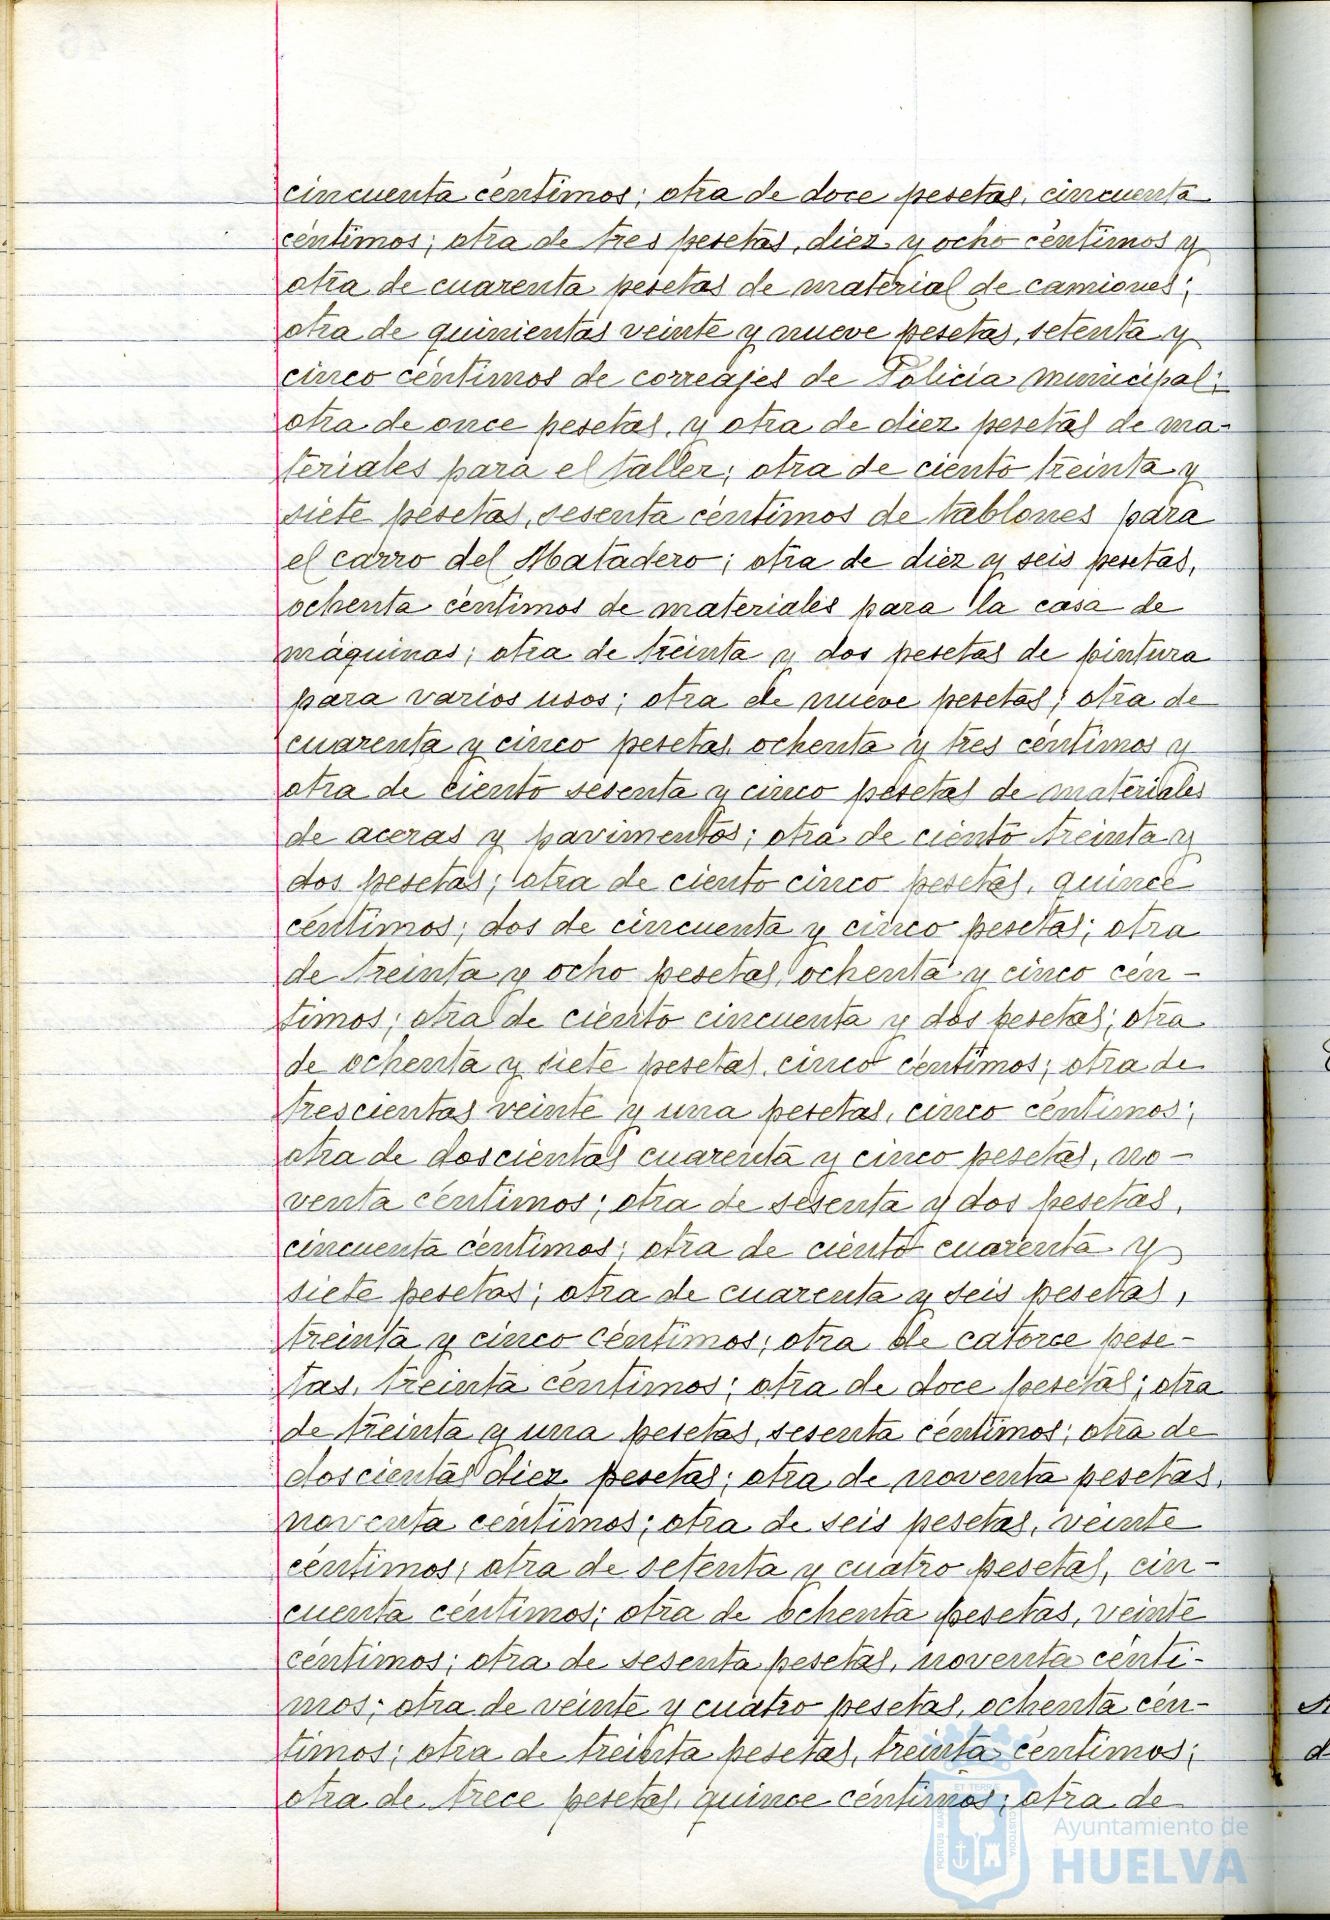 cincuenta céntimos; otra de doce pesetas, cincuenta
céntimos; otra de tres pesetas, diez y ocho céntimos y
otra de cuarenta pesetas de material de camiones;
otra de quinientas veinte y nueve pesetas, setenta y
cinco céntimos de correajes de Policía municipal;
otra de once pesetas, y otra de diez pesetas de ma-
teriales para el taller; otra de ciento treinta y
siete pesetas, sesenta céntimos de tablones para
el carro del Matadero; otra de diez y seis pesetas,
ochenta céntimos de materiales para la casa de
máquinas; otra de treinta y dos pesetas de pintura
para varios usos; otra de nueve pesetas; otra de
cuarenta y cinco pesetas, ochenta y tres céntimos y
otra de ciento sesenta y cinco pesetas de materiales
de aceras y pavimentos; otra de ciento treinta y
dos pesetas; otra de ciento cinco pesetas, quince
céntimos; dos de cincuenta y cinco pesetas; otra
de treinta y ocho pesetas, ochenta y cinco cén-
timos; otra de ciento cincuenta y dos pesetas; otra
de ochenta y siete pesetas, cinco céntimos; otra de
trescientas veinte y una pesetas, cinco céntimos;
otra de doscientas cuarenta y cinco pesetas, no-
venta céntimos; otra de sesenta y dos pesetas,
cincuenta céntimos; otra de ciento cuarenta y
siete pesetas; otra de cuarenta y seis pesetas,
treinta y cinco céntimos; otra de catorce pese-
tas, treinta céntimos; otra de doce pesetas; otra
de treinta y una pesetas, sesenta céntimos; otra de
doscientas diez pesetas; otra de noventa pesetas,
noventa céntimos; otra de seis pesetas, veinte
céntimos; otra de setenta y cuatro pesetas, cin-
cuenta céntimos; otra de ochenta pesetas, veinte
céntimos; otra de sesenta pesetas, noventa cénti-
mos; otra de veinte y cuatro pesetas, ochenta cén-
timos; otra de treinta pesetas, treinta céntimos;
otra de trece pesetas, quince céntimos; otra de
PORTUS MARIS ET TERRAE CUSTODIA
Ayuntamiento de
HUELVA